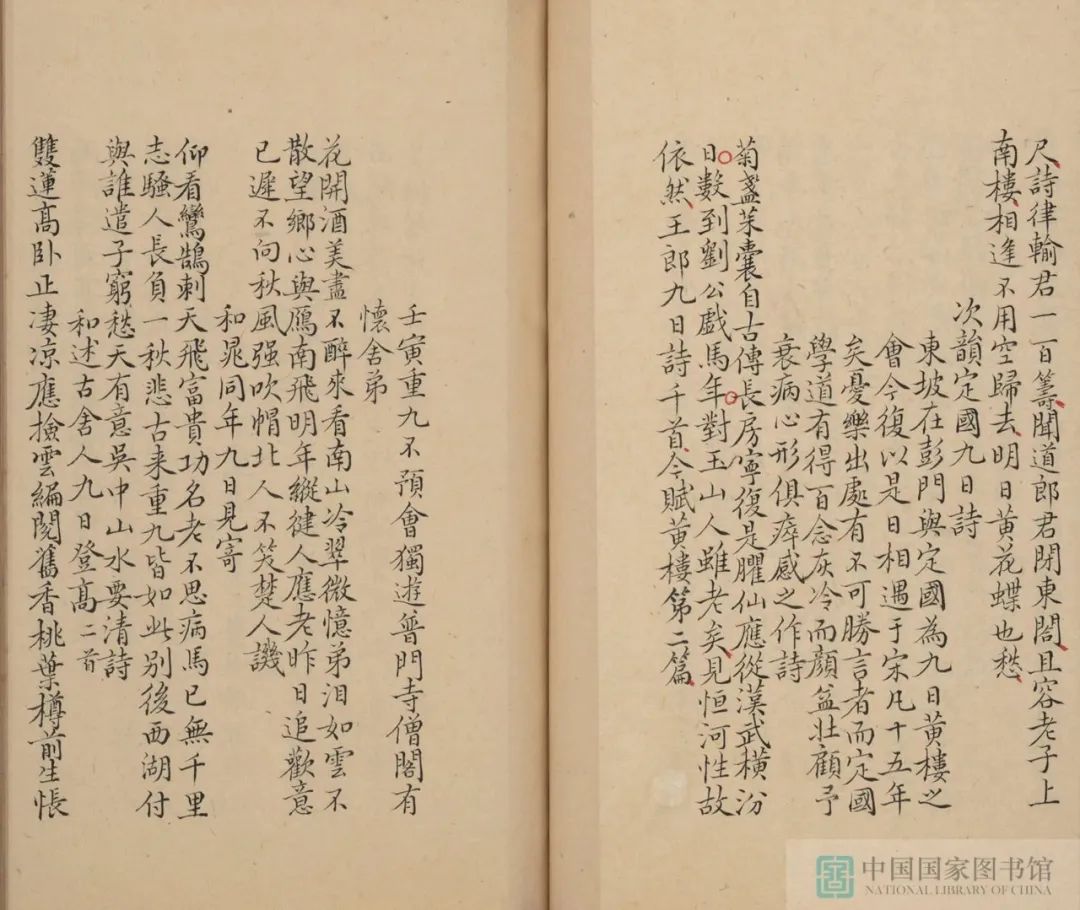 尺詩律輸君一百籌聞道郎君閉東閤且容老子上
南樓相逢不用空歸去明日黃花蝶也愁
次韻定國九日詩
東坡在彭門與定國為九日黃樓之
會今復以是日相遇于宋凡十五年
矣憂樂出處有不可勝言者而定國
學道有得百念灰冷而顏益壯顧予
衰病心形俱瘁感之作詩
菊盞茱囊自古傳長房寧復是臞仙應從漢武橫汾
日數到劉公戲馬年對玉山人雖老矣見恒河性故
依然王郎九日詩千首今賦黃樓第二篇
壬寅重九不預會獨遊普門寺僧閣有
懷舍弟
花開酒美盡不醉來看南山冷翠微憶弟泪如雲不
散望鄉心與鴈南飛明年縱健人應老昨日追歡意
已遲不向秋風强吹帽北人不笑楚人譏
和晁同年九日見寄
仰看鸞鵠刺天飛富貴功名老不思病馬已無千里
志騷人長負一秋悲古来重九皆如此别後西湖付
與誰遣子窮愁天有意吳中山水要清詩
和述古舍人九日登高二首
雙蓮高卧正凄凉應撿雲編閱舊香桃葉樽前生悵
中国国家图书馆
NATIONAL LIBRARY OF CHINA